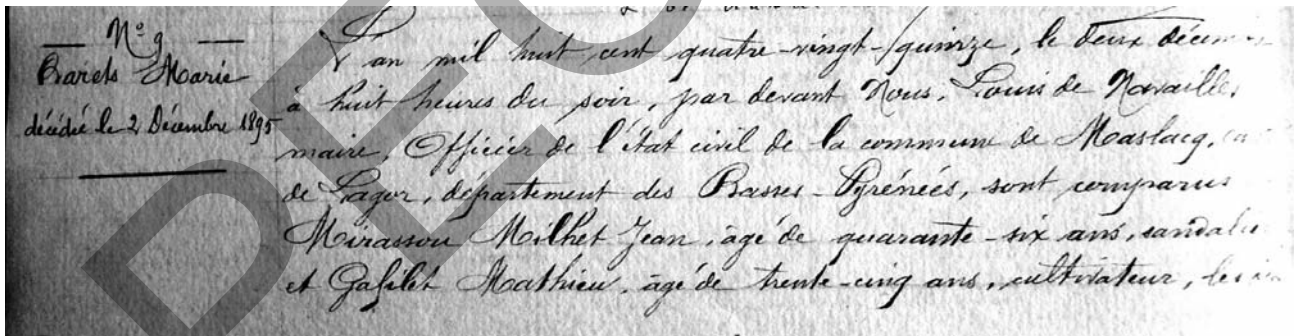 N° 9
Barets Marie
décédée le 2 Décembre 1895
L'an mil huit cent quatre-vingt-quinze, le deux décem
à huit heures du soir, par devant Nous, Louis de Navailles,
maire, Officier de l'état civil de la commune de Maslacq,
de Lagor, département des Basses-Pyrénées, sont comparus
Mirassou Milhet Jean, âgé de quarante-six ans, sandalie
et Gafilet Mathieu, âgé de trente-cinq ans, cultivateur, les